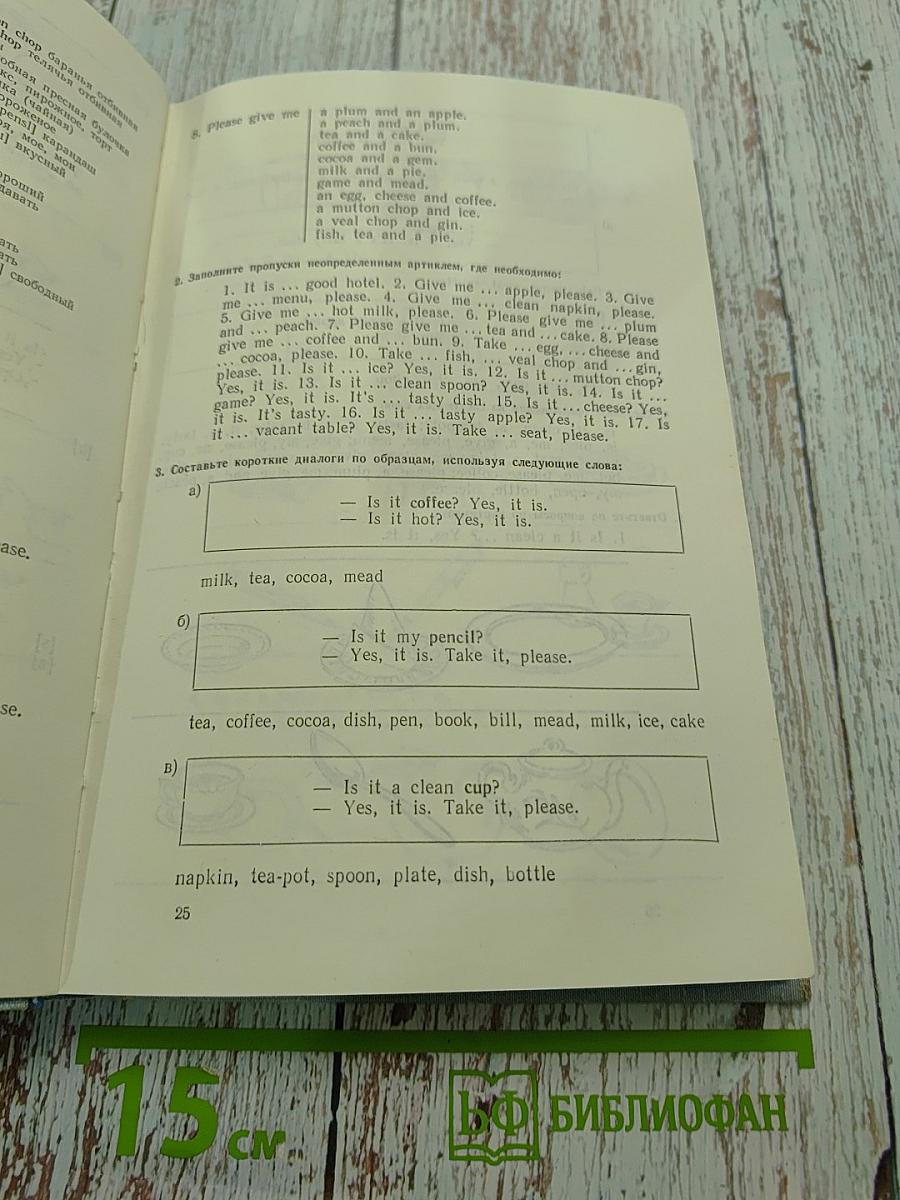 n chop баранья отбивная
hop телячья отбивная
обная пресная булочка
кс, пирожное, торт
ка (чайная)
ороженое
pensl] карандаш
я, мое, мои
] вкусный
ороший
давать
ать
ать
] свободный
ase.
se.
8. Please give me
a plum and an apple.
a peach and a plum.
tea and a cake.
coffee and a bun.
cocoa and a gem.
milk and a pie.
game and mead.
an egg, cheese and coffee.
a mutton chop and ice.
a veal chop and gin.
fish, tea and a pie.
2. Заполните пропуски неопределенным артиклем, где необходимо:
1. It is ... good hotel. 2. Give me ... apple, please. 3. Give
me ... menu, please. 4. Give me ... clean napkin, please.
5. Give me ... hot milk, please. 6. Please give me ... plum
and ... peach. 7. Please give me ... tea and ... cake. 8. Please
give me ... coffee and ... bun. 9. Take ... egg, ... cheese and
... cocoa, please. 10. Take ... fish, ... veal chop and ... gin,
please. 11. Is it ... ice? Yes, it is. 12. Is it ... mutton chop?
Yes, it is. 13. Is it ... clean spoon? Yes, it is. 14. Is it ...
game? Yes, it is. It's ... tasty dish. 15. Is it ... cheese? Yes,
it is. It's tasty. 16. Is it ... tasty apple? Yes, it is. 17. Is
it ... vacant table? Yes, it is. Take ... seat, please.
3. Составьте короткие диалоги по образцам, используя следующие слова:
а)
— Is it coffee? Yes, it is.
— Is it hot? Yes, it is.
milk, tea, cocoa, mead
б)
— Is it my pencil?
— Yes, it is. Take it, please.
tea, coffee, cocoa, dish, pen, book, bill, mead, milk, ice, cake
в)
— Is it a clean cup?
— Yes, it is. Take it, please.
napkin, tea-pot, spoon, plate, dish, bottle
25
15 см
БФ БИБЛИОФАН